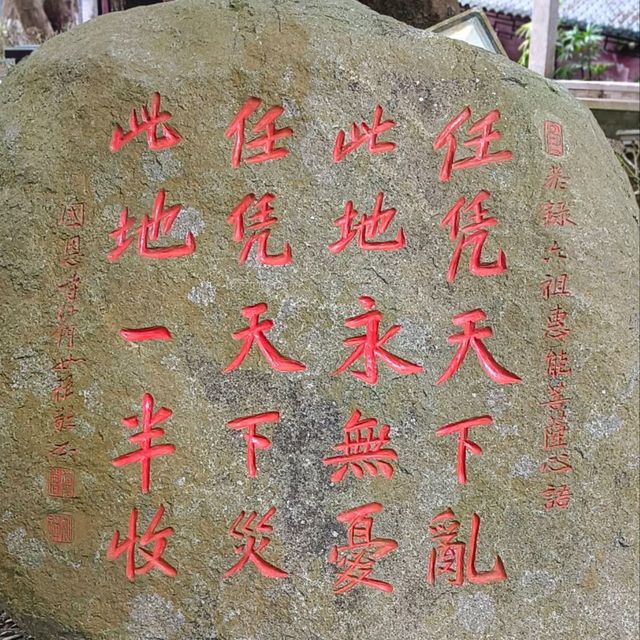 恭錄六祖惠能菩薩心語
任凭天下亂
此地永無憂
任凭天下災
此地一半收
國恩寺